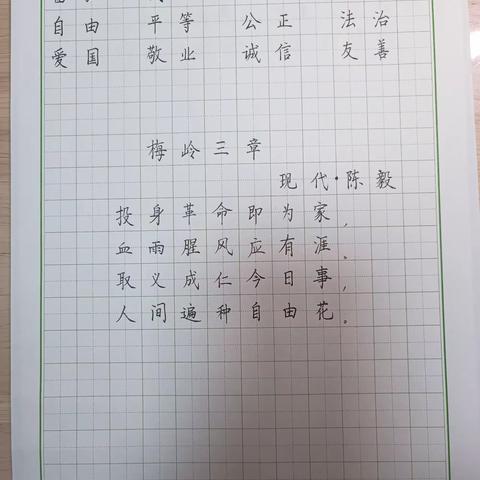 自由 平等 公正 法治
爱国 敬业 诚信 友善
梅岭三章
现代·陈毅
投身革命即为家，
血雨腥风应有涯。
取义成仁今日事，
人间遍种自由花。